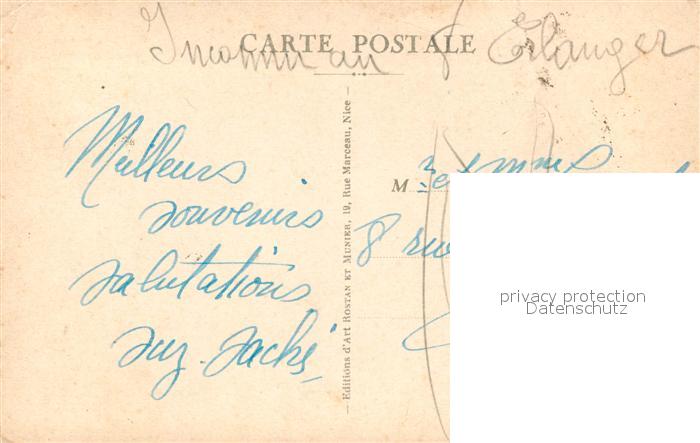 CARTE POSTALE
Inconnu au 8 Erlanger
Meilleurs
souvenirs
salutations
Suz.
Editions d'Art ROSTAN ET MUNIER, 19, Rue Marceau, Nice
M r et Mme
8 rue
privacy protection
Datenschutz